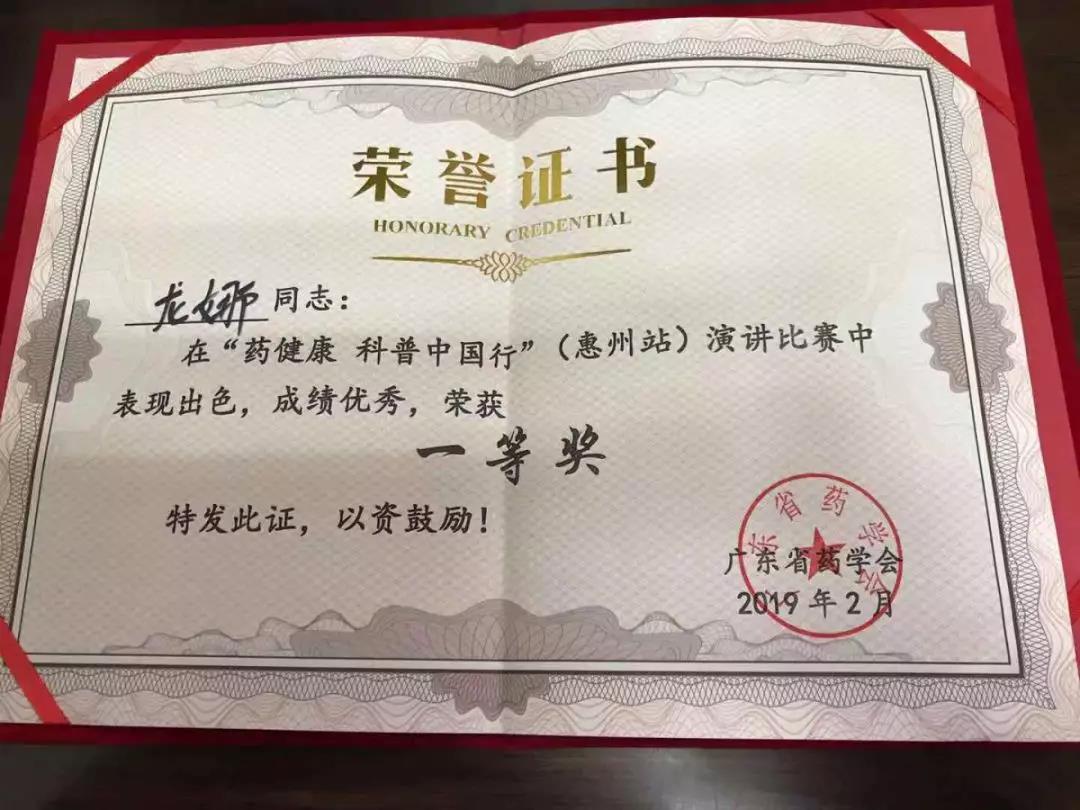 荣誉证书
HONORARY CREDENTIAL
龙娜 同志：
在“药健康 科普中国行”（惠州站）演讲比赛中
表现出色，成绩优秀，荣获
一等奖
特发此证，以资鼓励！
广东省药学会
广东省药学会
2019年2月